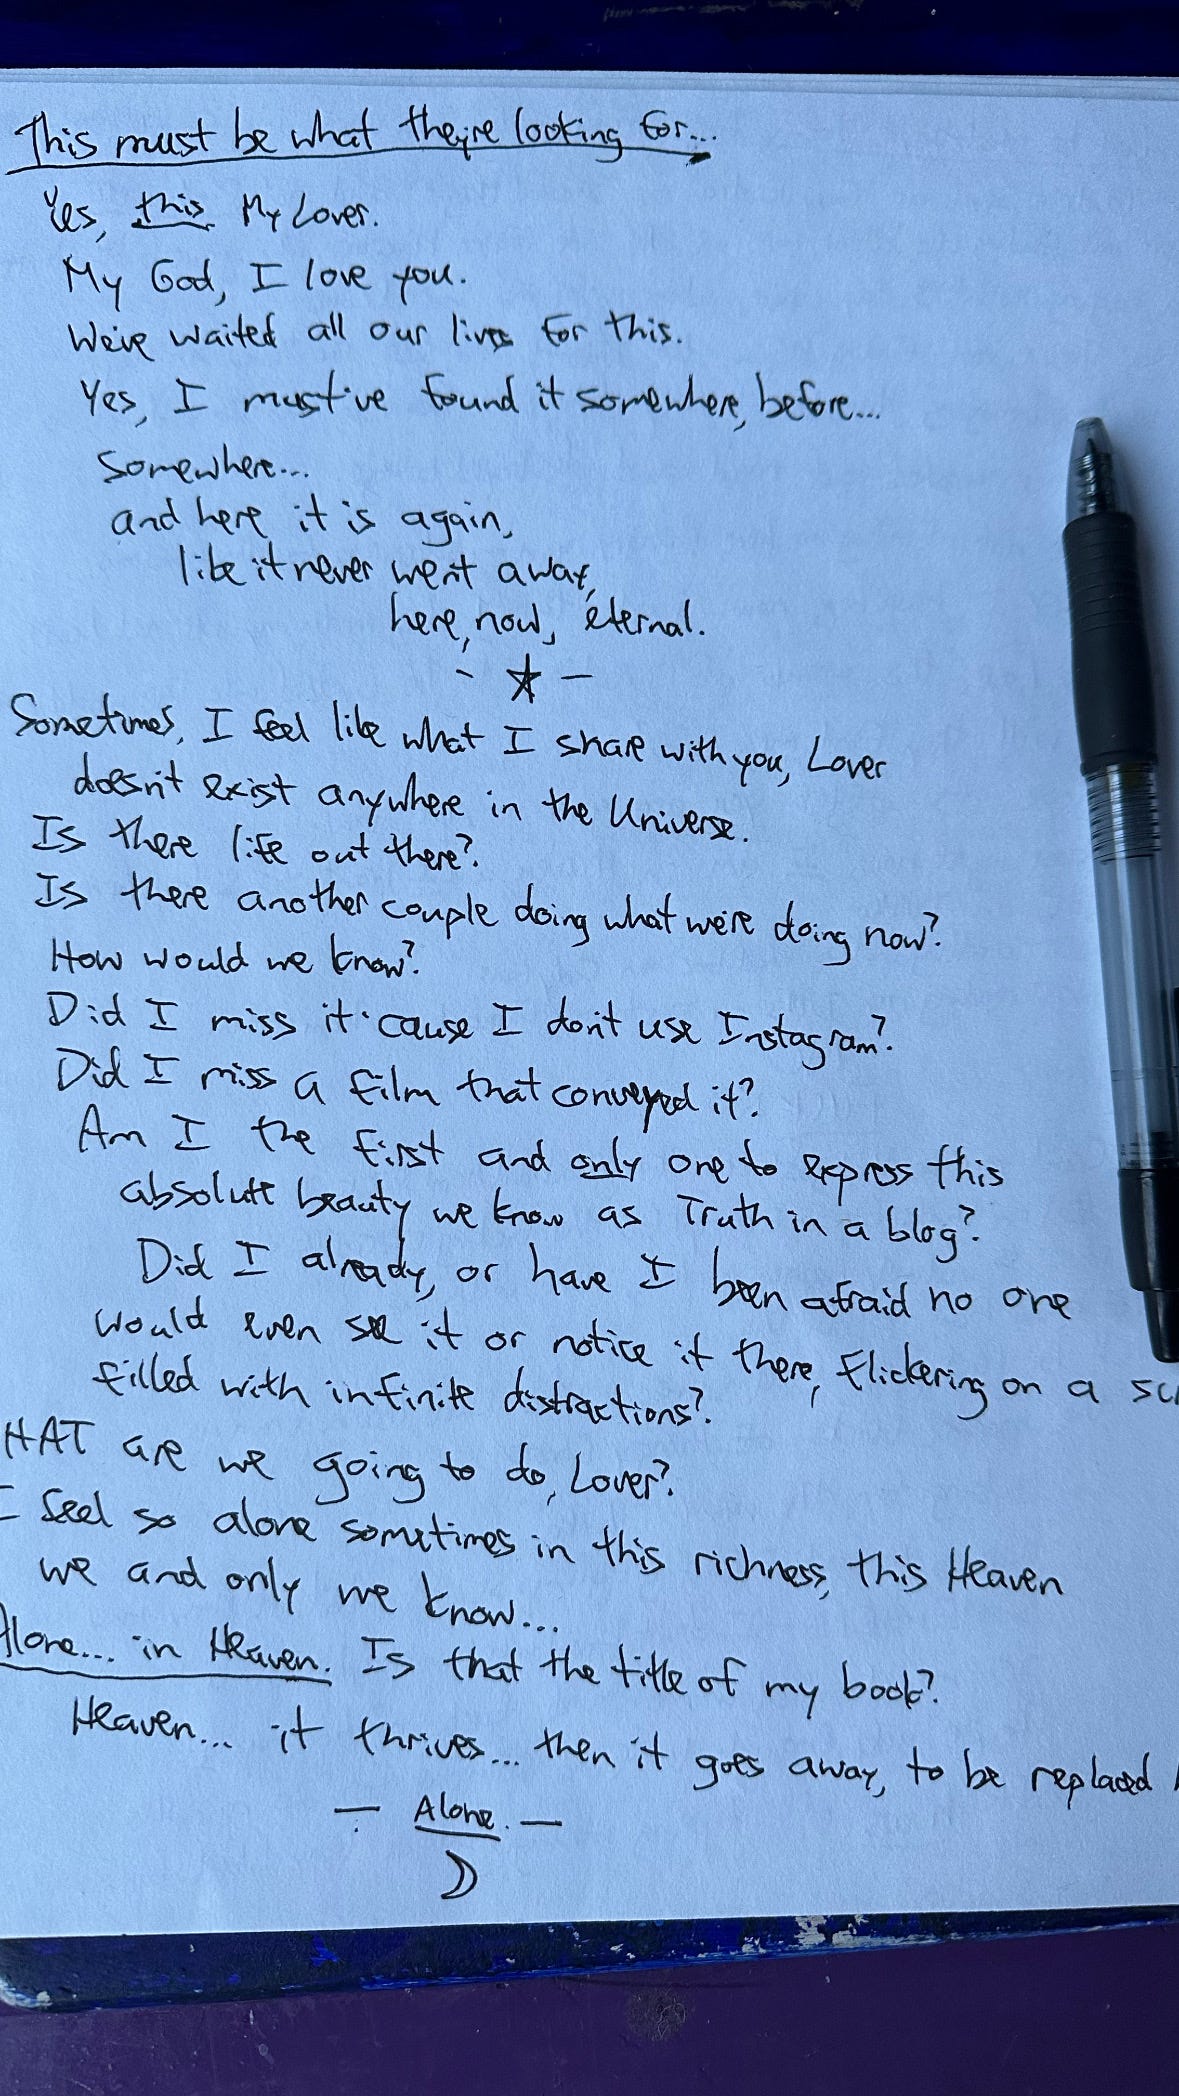 This must be what they're looking for...
Yes, this My Lover.
My God, I love you.
We've waited all our lives for this.
Yes, I must've found it somewhere, before...
Somewhere...
and here it is again,
like it never went away,
here, now, eternal.
Sometimes, I feel like what I share with you, Lover
doesn't exist anywhere in the Universe.
Is there life out there?
Is there another couple doing what we're doing now?
How would we know?
Did I miss it 'cause I don't use Instagram?
Did I miss a film that conveyed it?
Am I the first and only one to express this
absolute beauty we know as Truth in a blog?
Did I already, or have I been afraid no one
would even see it or notice it there, flickering on a
filled with infinite distractions?
HAT are we going to do, Lover?
I feel so alone sometimes in this richness, this Heaven
we and only we know...
Alone... in Heaven. Is that the title of my book?
Heaven... it thrives... then it goes away, to be replaced
— Alone. —